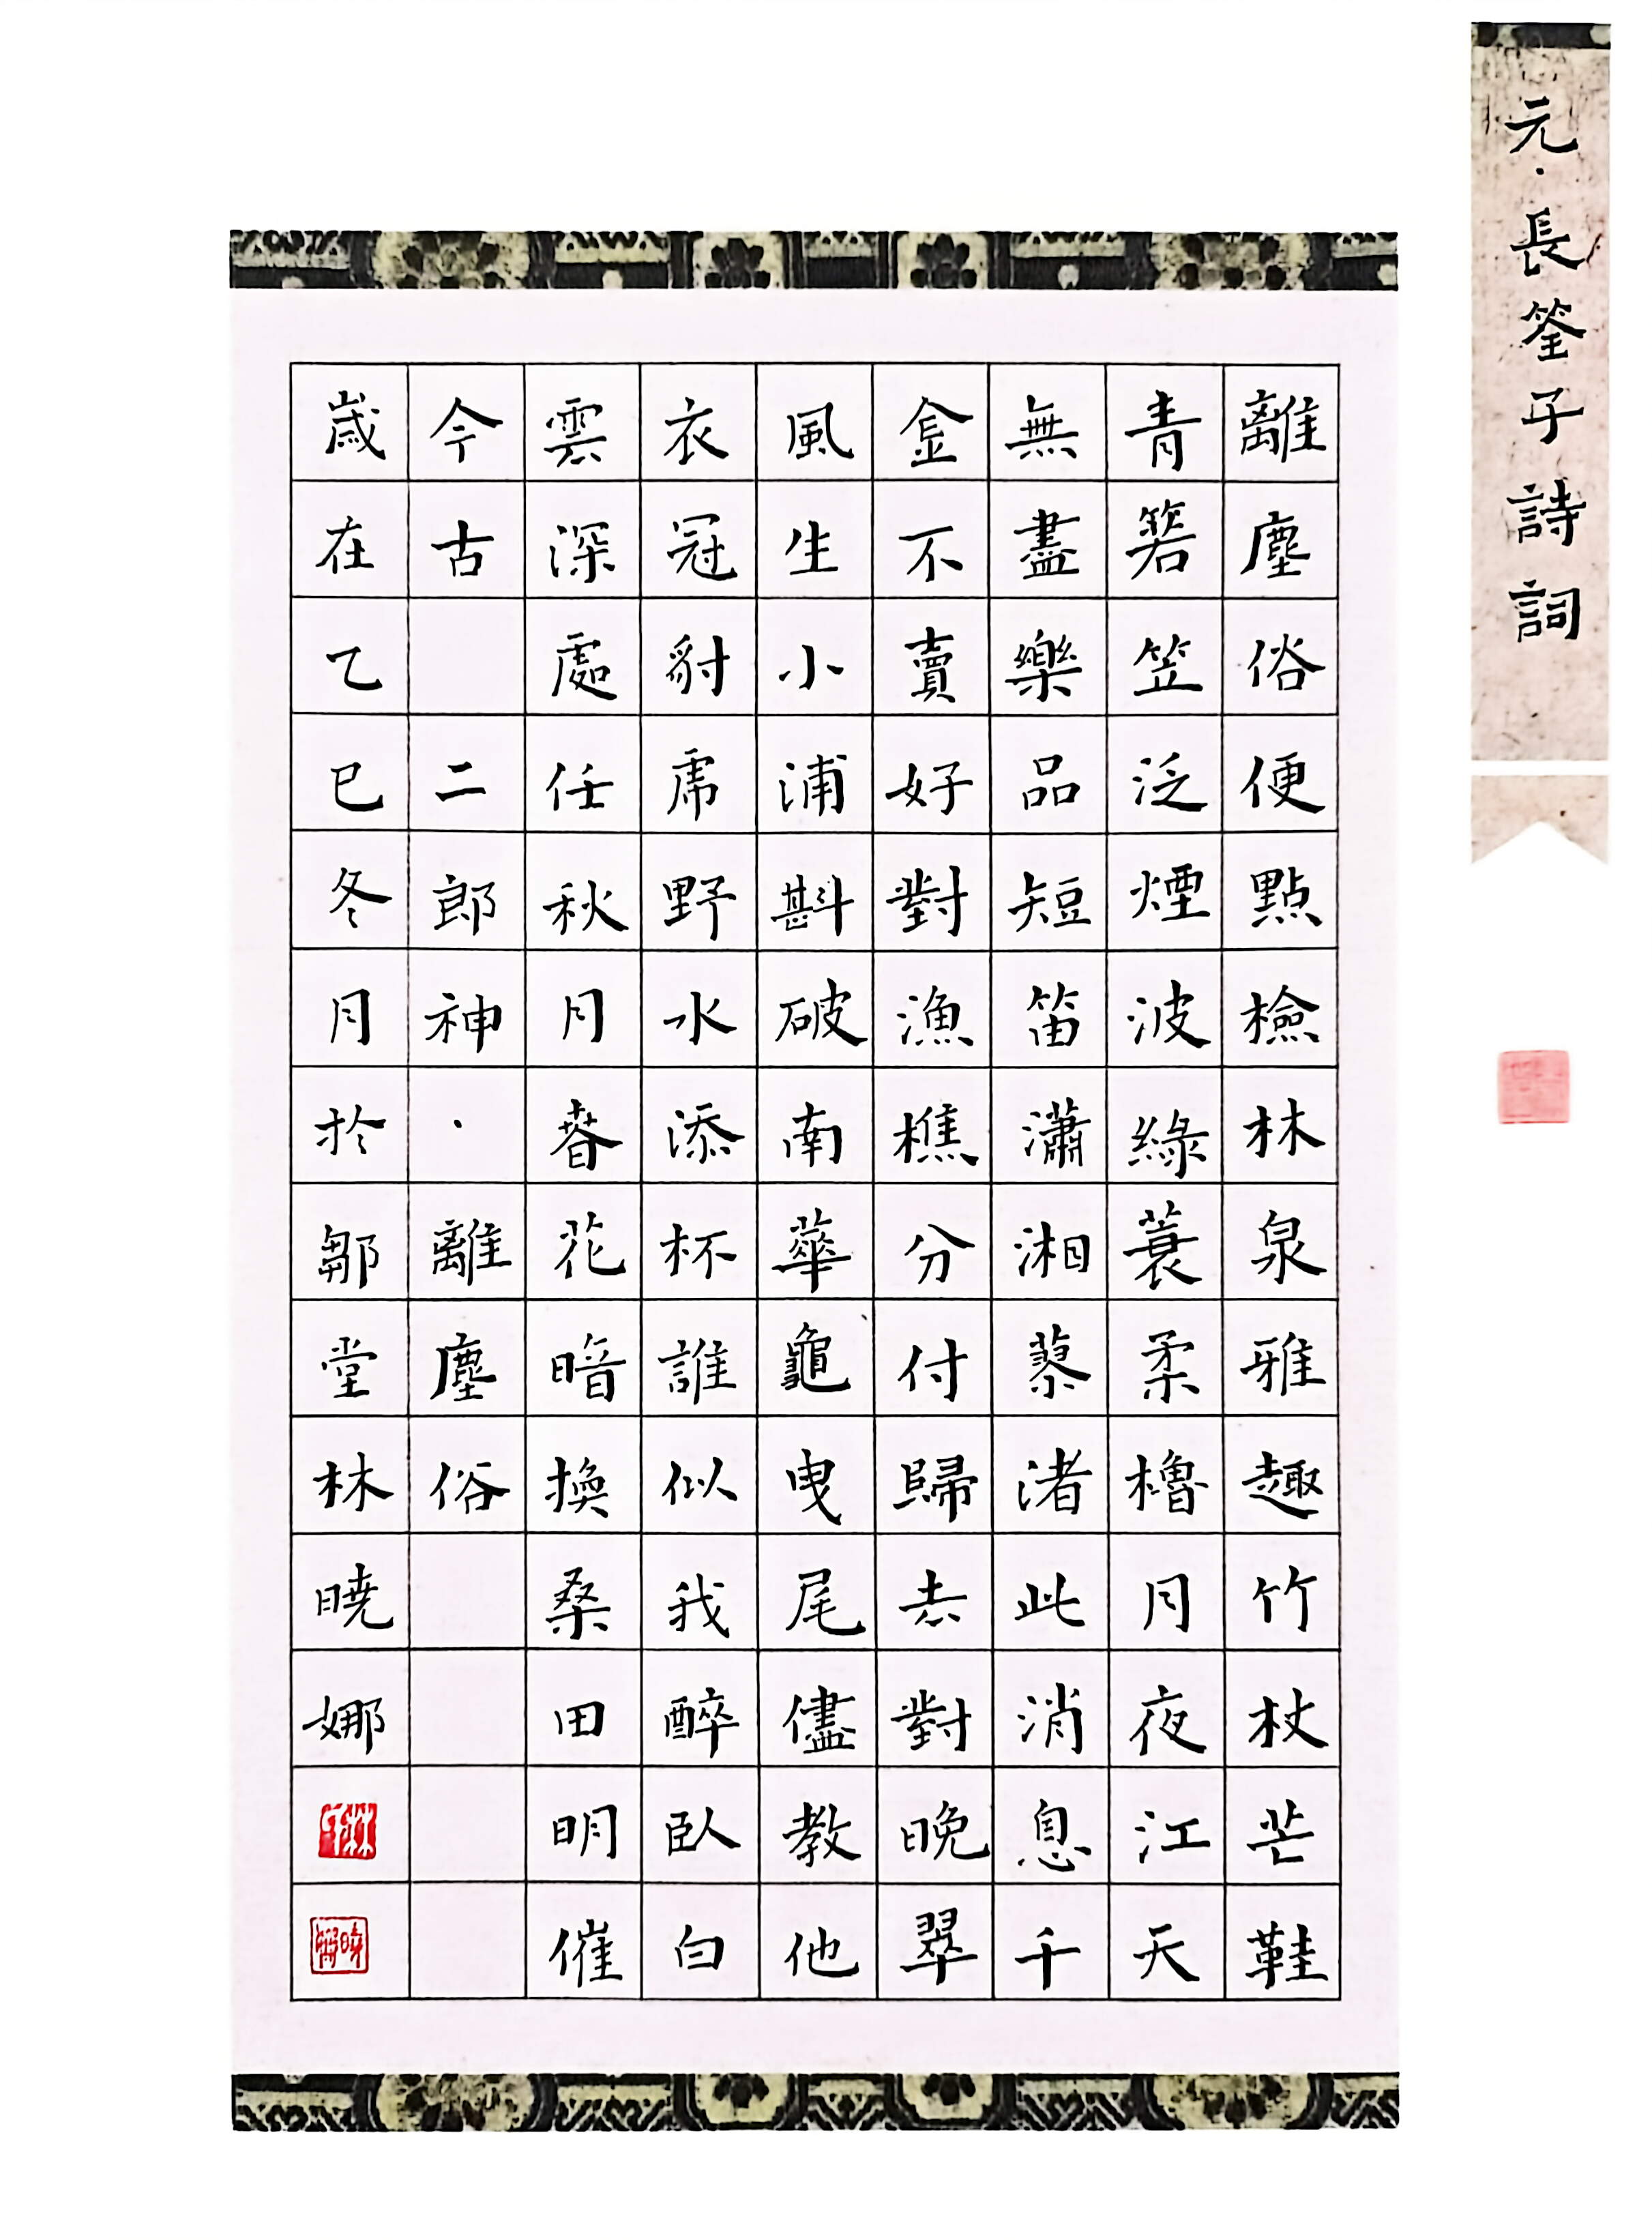 元·長筌子詩詞
離塵俗便點檢林泉雅趣竹杖芒鞋
青箬笠泛煙波綠蓑柔櫓月夜江天
無盡樂品短笛瀟湘蓼渚此消息千
金不賣好對漁樵分付歸去對晚翠
風生小浦斟破南華龜曳尾儘教他
衣冠豸虎野水添杯誰似我醉臥白
雲深處任秋月春花暗換桑田明催
今古 二郎神·離塵俗
歲在乙巳冬月於鄒堂林曉娜